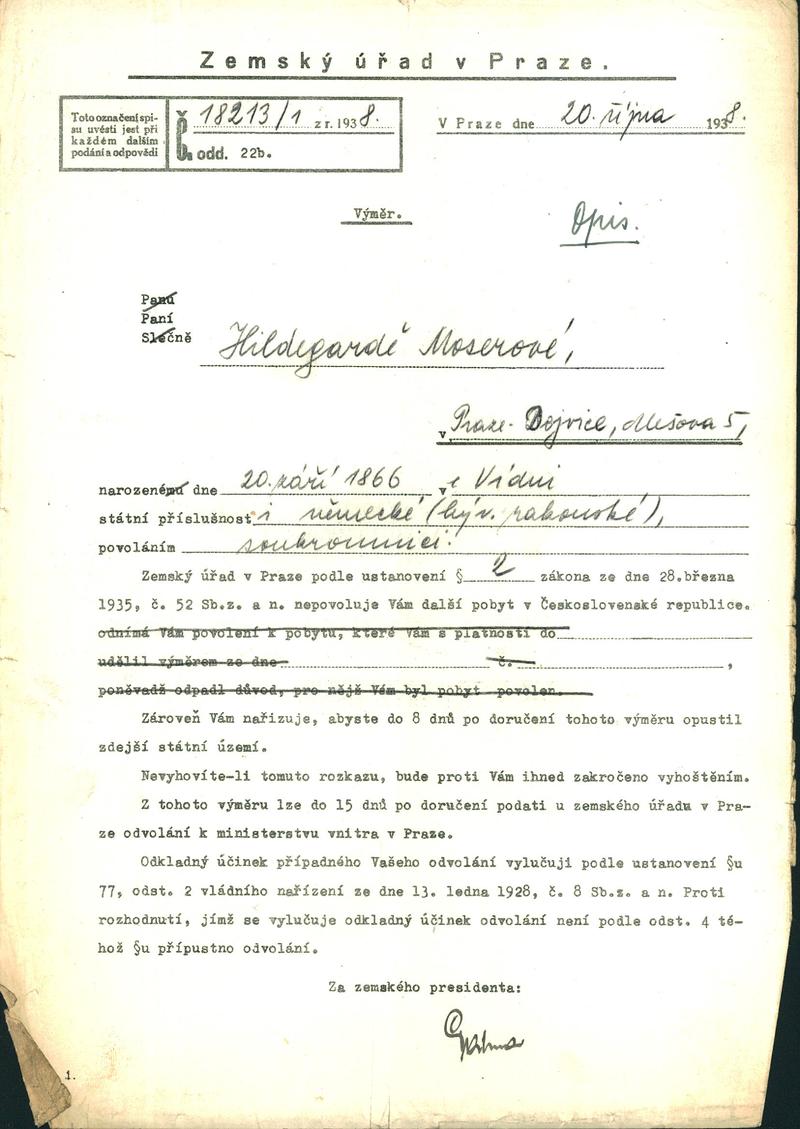 Zemský úřad v Praze.
Toto označení spi-
su uvésti jest při
každém dalším
podání a odpovědi
Č. 18213/1 z r. 1938.
odd. 22b.
V Praze dne 20. října 1938.
Výměr.
Opis.
Panu
Paní
Slečně
Hildegardě Moserové,
v Praze-Dejvice, Mlešova 5,
narozenému dne 20. září 1866 v e Vídni
státní příslušnosti německé (býv. rakouské),
povoláním soukromnici.
Zemský úřad v Praze podle ustanovení § 2 zákona ze dne 28.března
1935, č. 52 Sb.z. a n. nepovoluje Vám další pobyt v Československé republice.
odnímá Vám povolení k pobytu, které Vám s platností do
udělil výměrem ze dne č. ,
poněvadž odpadl důvod, pro nějž Vám byl pobyt povolen.
Zároveň Vám nařizuje, abyste do 8 dnů po doručení tohoto výměru opustil
zdejší státní území.
Nevyhovíte-li tomuto rozkazu, bude proti Vám ihned zakročeno vyhoštěním.
Z tohoto výměru lze do 15 dnů po doručení podati u zemského úřadu v Pra-
ze odvolání k ministerstvu vnitra v Praze.
Odkladný účinek případného Vašeho odvolání vylučuji podle ustanovení §u
77, odst. 2 vládního nařízení ze dne 13. ledna 1928, č. 8 Sb.z. a n. Proti
rozhodnutí, jímž se vylučuje odkladný účinek odvolání není podle odst. 4 té-
hož §u přípustno odvolání.
Za zemského presidenta:
1.